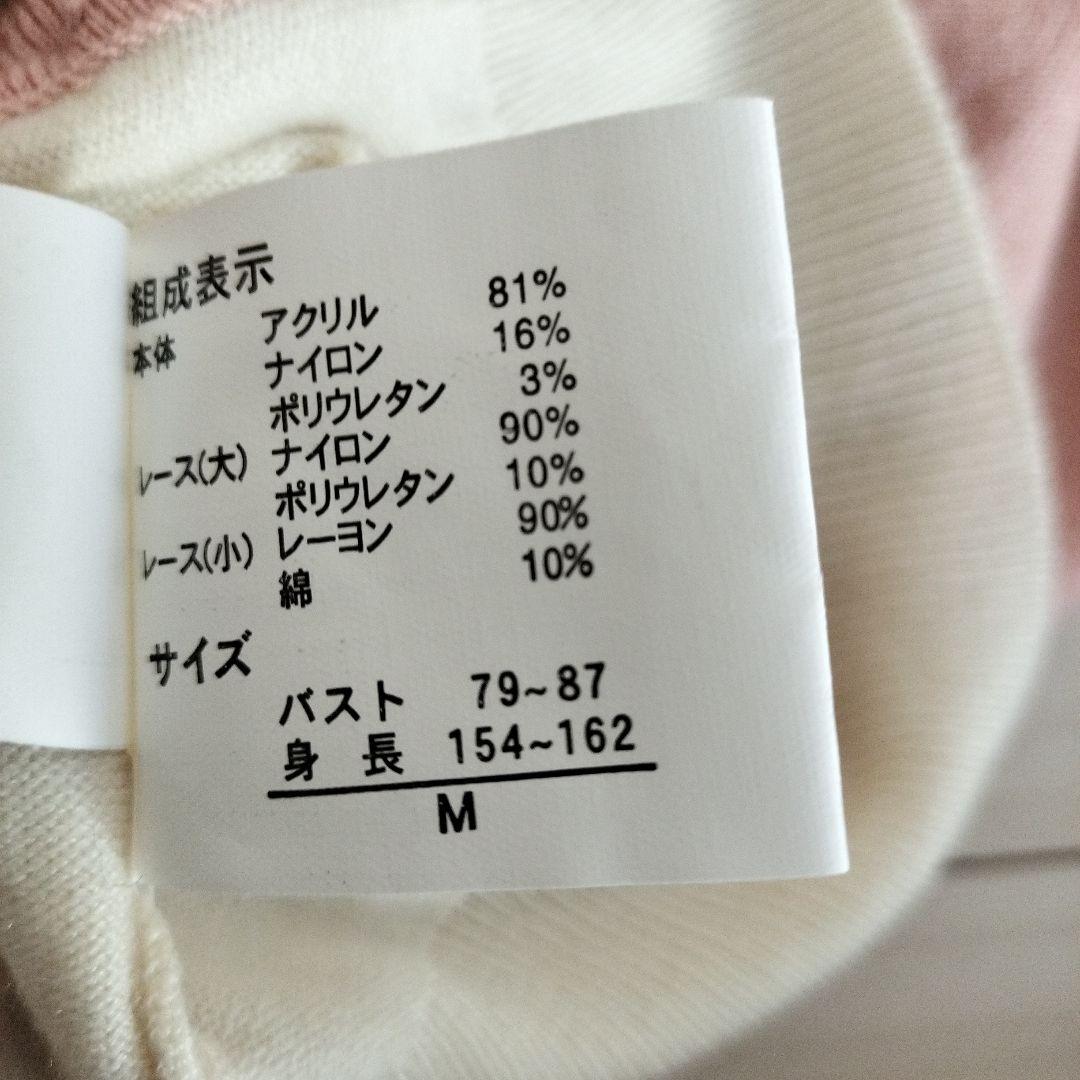 組成表示
本体 アクリル 81%
ナイロン 16%
ポリウレタン 3%
レース(大) ナイロン 90%
ポリウレタン 10%
レース(小) レーヨン 90%
綿 10%
サイズ
バスト 79~87
身長 154~162
M